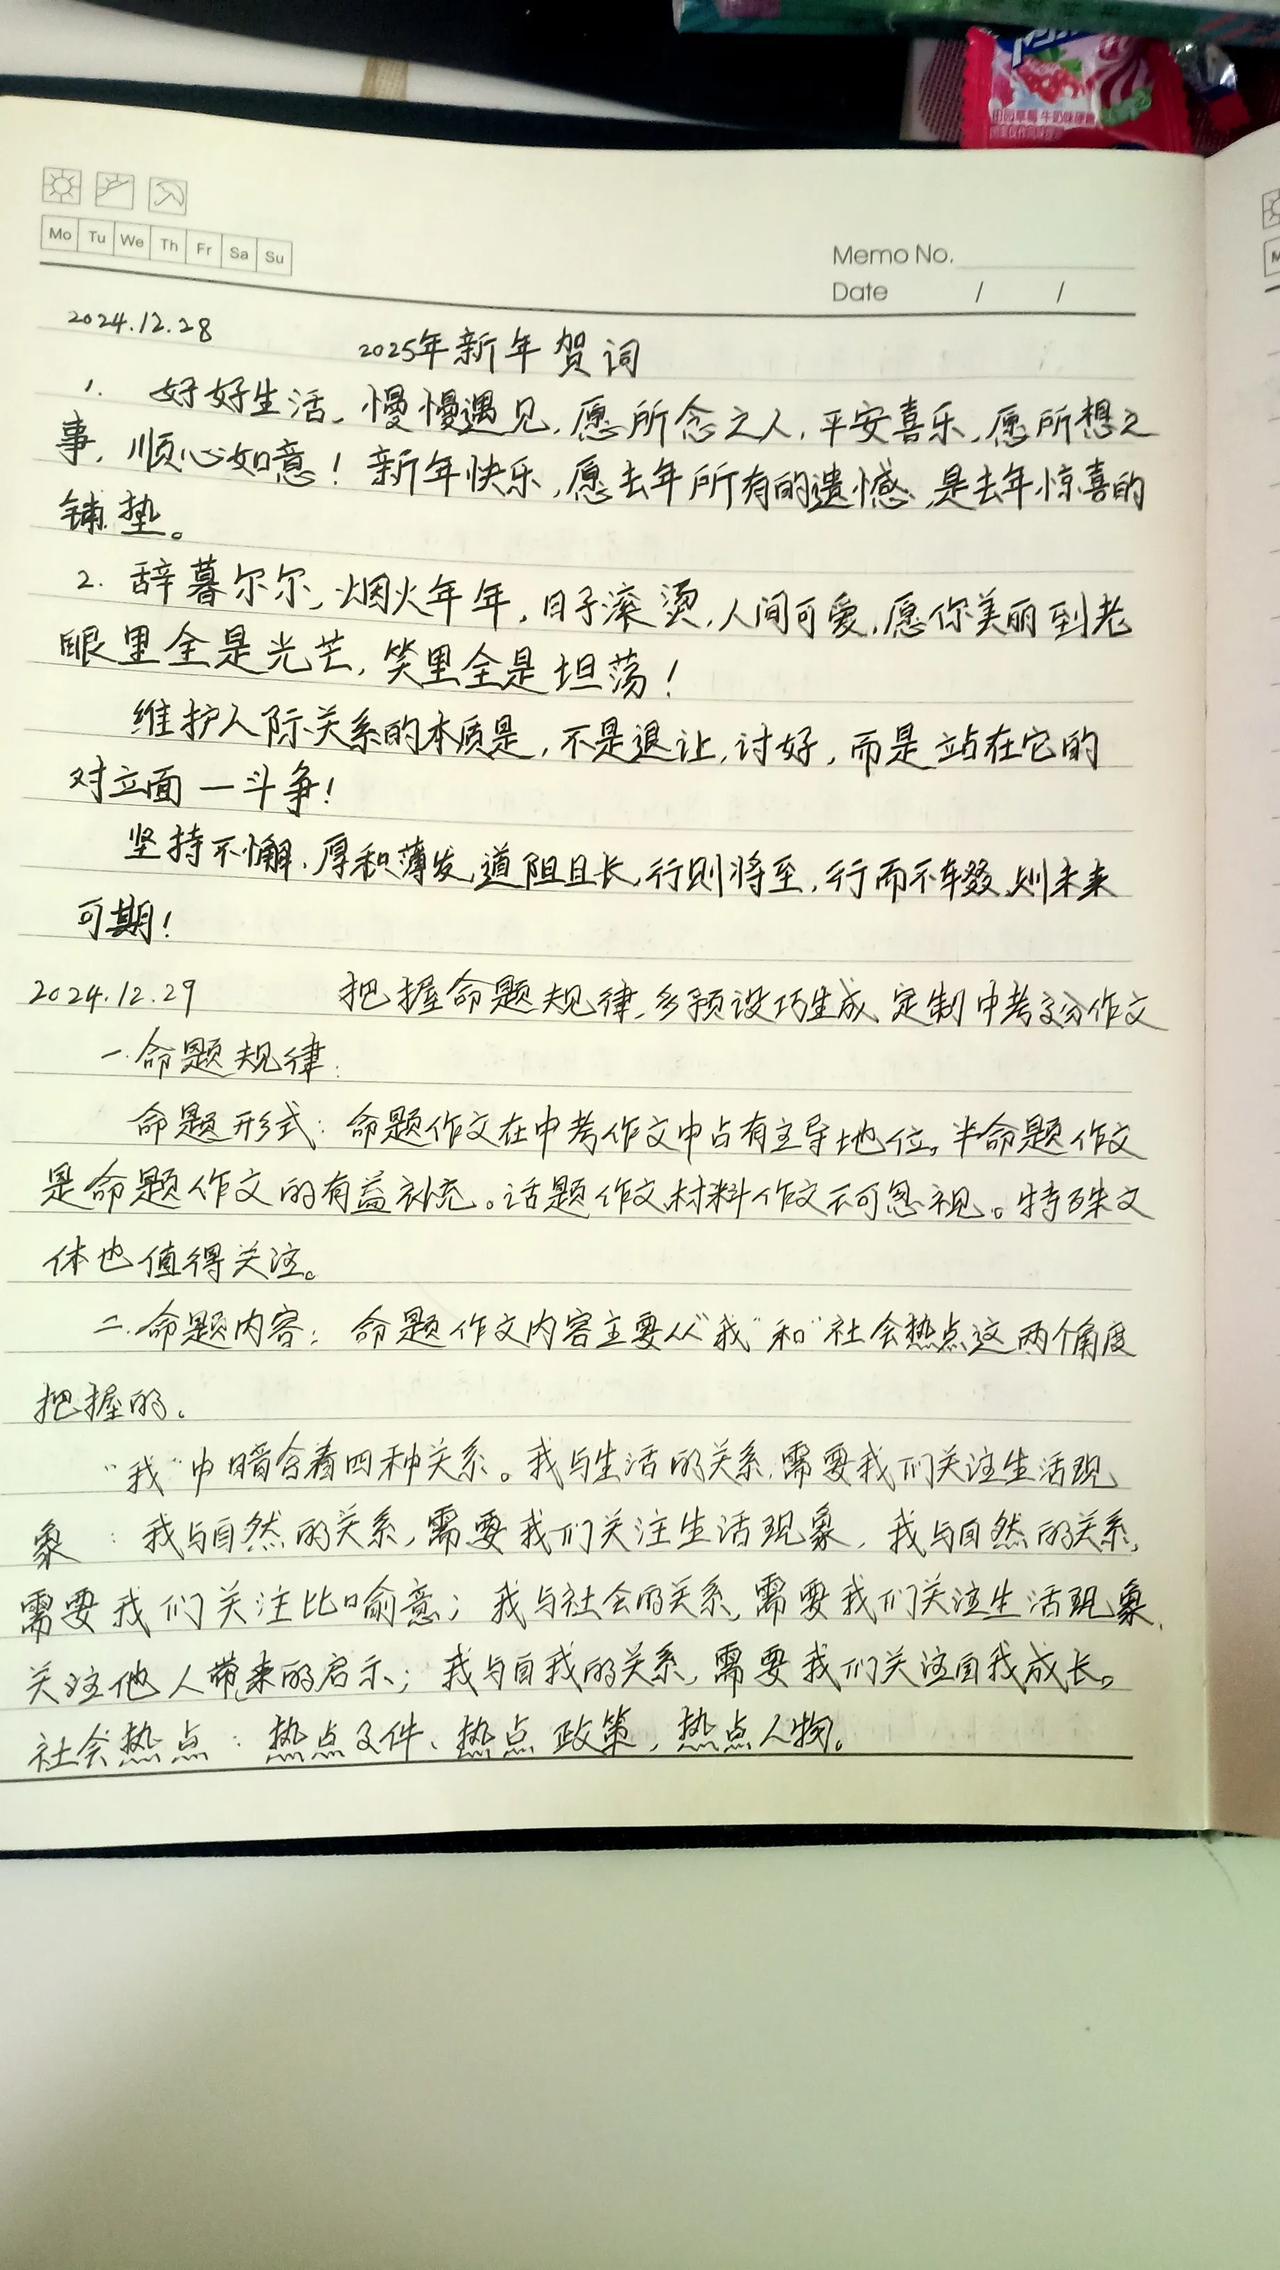 牛奶味硬糖
Mo Tu We Th Fr Sa Su
Memo No.
Date / /
2024.12.28
2025年新年贺词
1. 好好生活，慢慢遇见，愿所念之人，平安喜乐，愿所想之
事，顺心如意！新年快乐，愿去年所有的遗憾，是去年惊喜的
铺垫。
2. 辞暮尔尔，烟火年年，日子滚烫，人间可爱，愿你美丽到老
眼里全是光芒，笑里全是坦荡！
维护人际关系的本质是，不是退让，讨好，而是站在它的
对立面一斗争！
坚持不懈，厚积薄发，道阻且长，行则将至，行而不辍，则未来
可期！
2024.12.29 把握命题规律，乡预设巧生成，定制中考高分作文
一.命题规律：
命题形式：命题作文在中考作文中占有主导地位。半命题作文
是命题作文的有益补充。话题作文，材料作文不可忽视。特殊文
体也值得关注。
二.命题内容：命题作文内容主要从“我”和“社会热点这两个角度
把握的。
“我”中暗含着四种关系。我与生活的关系，需要我们关注生活现
象：我与自然的关系，需要我们关注生活现象，我与自然的关系，
需要我们关注比喻意；我与社会的关系，需要我们关注生活现象，
关注他人带来的启示；我与自我的关系，需要我们关注自我成长。
社会热点：热点文件、热点政策，热点人物。